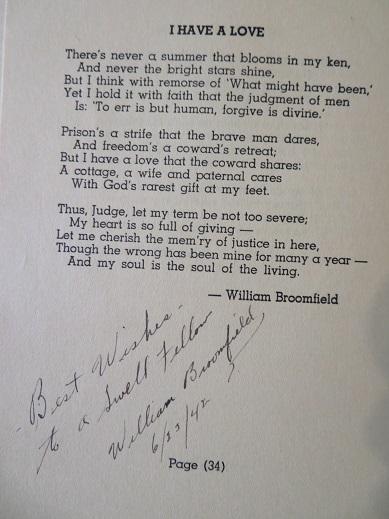 I HAVE A LOVE
There's never a summer that blooms in my ken,
And never the bright stars shine,
But I think with remorse of 'What might have been,'
Yet I hold it with faith that the judgment of men
Is: 'To err is but human, forgive is divine.'
Prison's a strife that the brave man dares,
And freedom's a coward's retreat;
But I have a love that the coward shares:
A cottage, a wife and paternal cares
With God's rarest gift at my feet.
Thus, Judge, let my term be not too severe;
My heart is so full of giving —
Let me cherish the mem'ry of justice in here,
Though the wrong has been mine for many a year —
And my soul is the soul of the living.
— William Broomfield
- Best Wishes -
to a Swell Fellow
William Broomfield
6/23/42
Page (34)